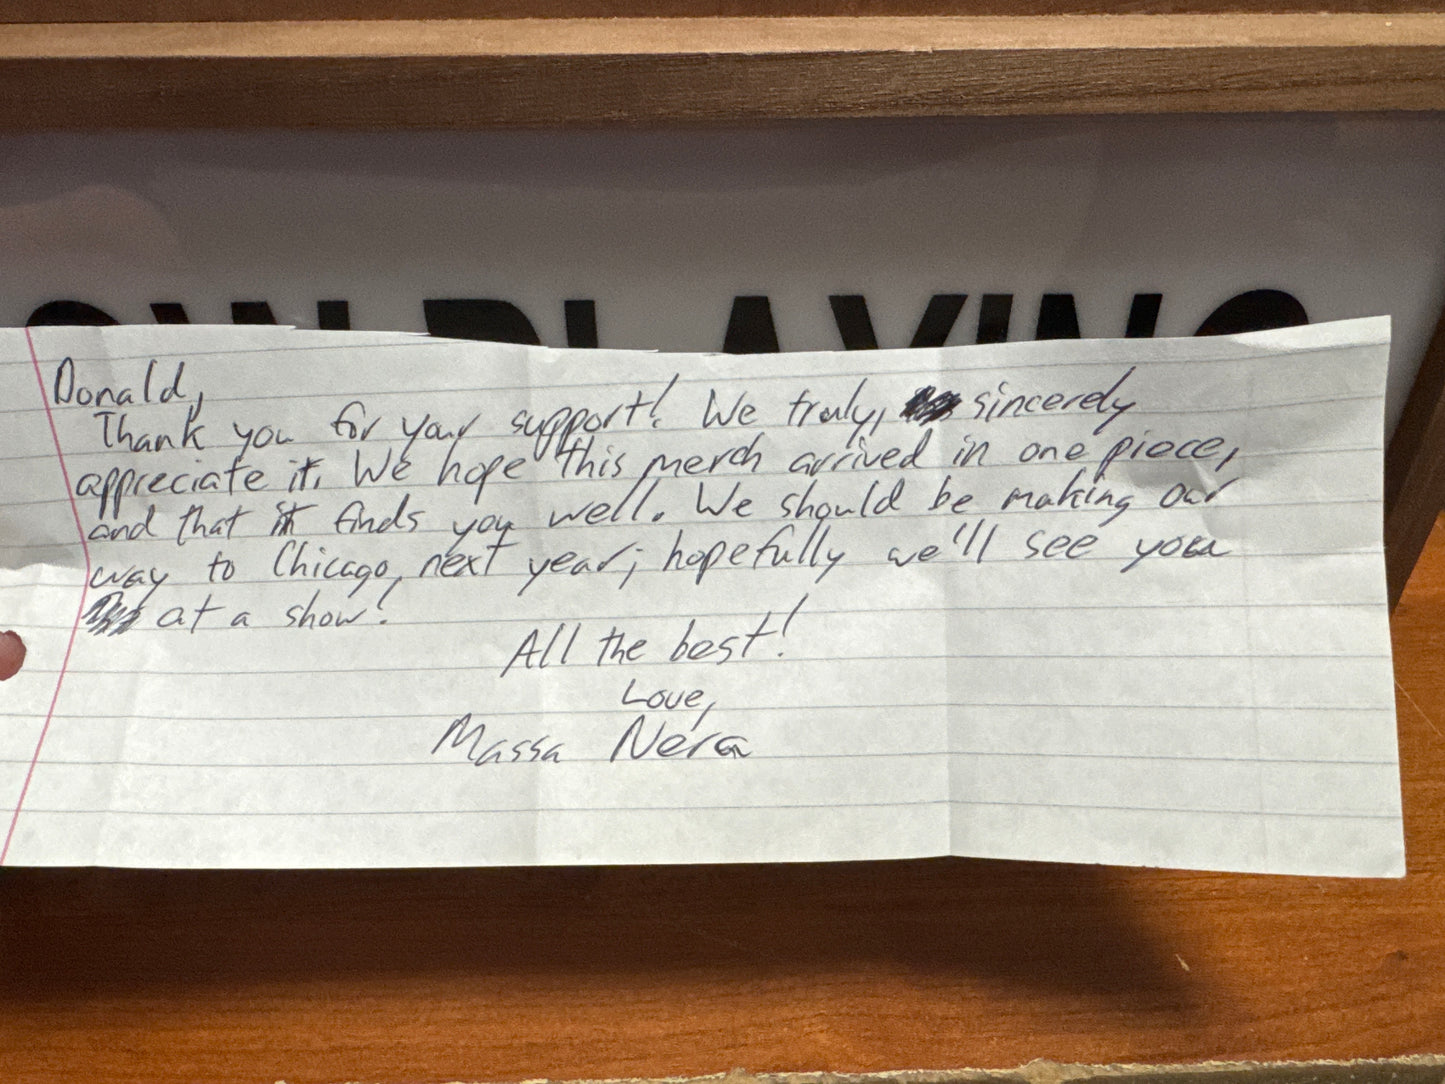 OW PLAYING
Donald,
Thank you for your support! We truly, sincerely
appreciate it. We hope this merch arrived in one piece,
and that it finds you well. We should be making our
way to Chicago, next year; hopefully we'll see you
at a show!
All the best!
Love,
Massa Nera